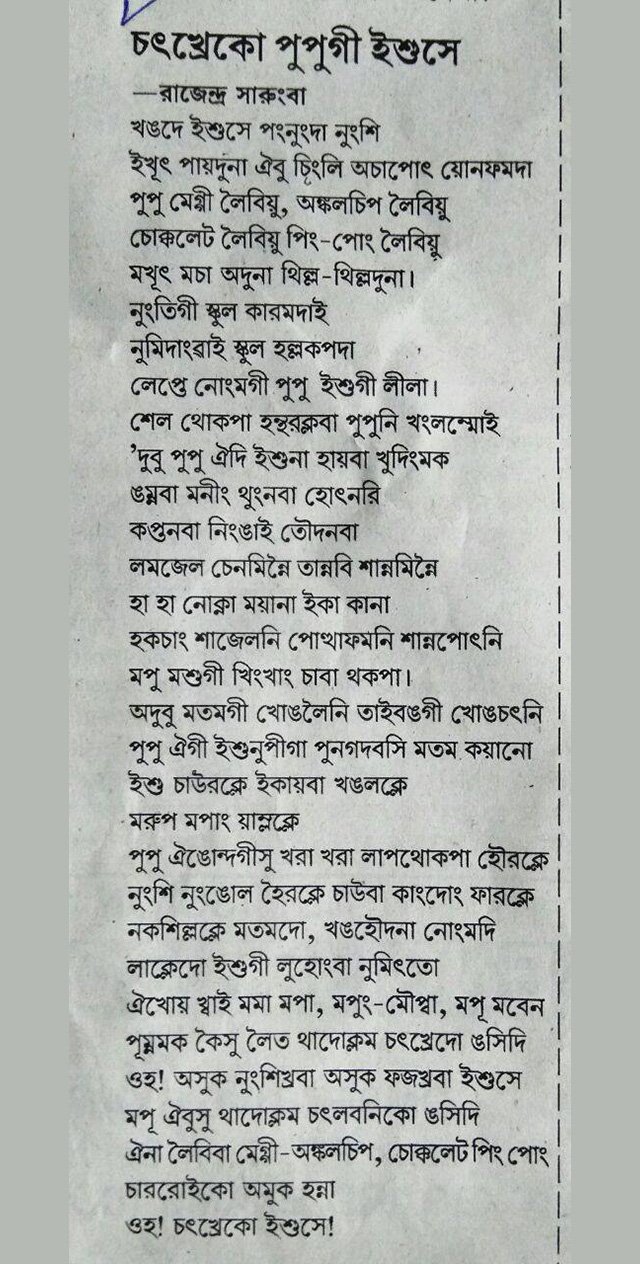 চৎখ্রেকো পুপুগী ইশুসে
—রাজেন্দ্র সারুংবা
খঙদে ইশুসে পংনুংদা নুংশি
ইখূৎ পায়দুনা ঐবু চিংলি অচাপোৎ য়োনফমদা
পুপু মেগ্গী লৈবিয়ু, অঙ্কলচিপ লৈবিয়ু
চোক্কলেট লৈবিয়ু পিং-পোং লৈবিয়ু
মখূৎ মচা অদুনা থিল্ল-থিল্লদুনা।
নুংতিগী স্কুল কারমদাই
নুমিদাংৱাই স্কুল হল্লকপদা
লেপ্তে নোংমগী পুপু ইশুগী লীলা।
শেল থোকপা হন্থরক্লবা পুপুনি খংলম্মোই
'দুবু পুপু ঐদি ইশুনা হায়বা খুদিংমক
ঙম্নবা মনীং থুংনবা হোৎনরি
কপ্তুনবা নিংঙাই তৌদনবা
লমজেল চেনমিন্নৈ তান্নবি শান্নমিন্নৈ
হা হা নোক্না ময়ানা ইকা কানা
হকচাং শাজেলনি পোত্থাফমনি শান্নপোৎনি
মপু মশুগী খিংখাং চাবা থকপা।
অদুবু মতমগী খোঙলৈনি তাইবঙগী খোঙচৎনি
পুপু ঐগী ইশুনুপীগা পুনগদবসি মতম কয়ানো
ইশু চাউরক্লে ইকায়বা খঙলক্লে
মরুপ মপাং য়াম্লক্লে
পুপু ঐঙোন্দগীসু খরা খরা লাপথোকপা হৌরক্লে
নুংশি নুংঙোল হৈরক্লে চাউবা কাংদোং ফারক্লে
নকশিল্লক্লে মতমদো, খঙহৌদনা নোংমদি
লাক্লেদো ইশুগী লুহোংবা নুমিৎতো
ঐখোয় খ্বাই মমা মপা, মপুং-মৌপ্বা, মপূ মবেন
পূম্নমক কৈসু লৈত থাদোক্লম চৎখ্রেদো ঙসিদি
ওহ! অসুক নুংশিখ্রবা অসুক ফজখ্রবা ইশুসে
মপূ ঐবুসু থাদোক্লম চৎলবনিকো ঙসিদি
ঐনা লৈবিবা মেগ্গী-অঙ্কলচিপ, চোক্কলেট পিং পোং
চাররোইকো অমুক হন্না
ওহ! চৎখ্রেকো ইশুসে!